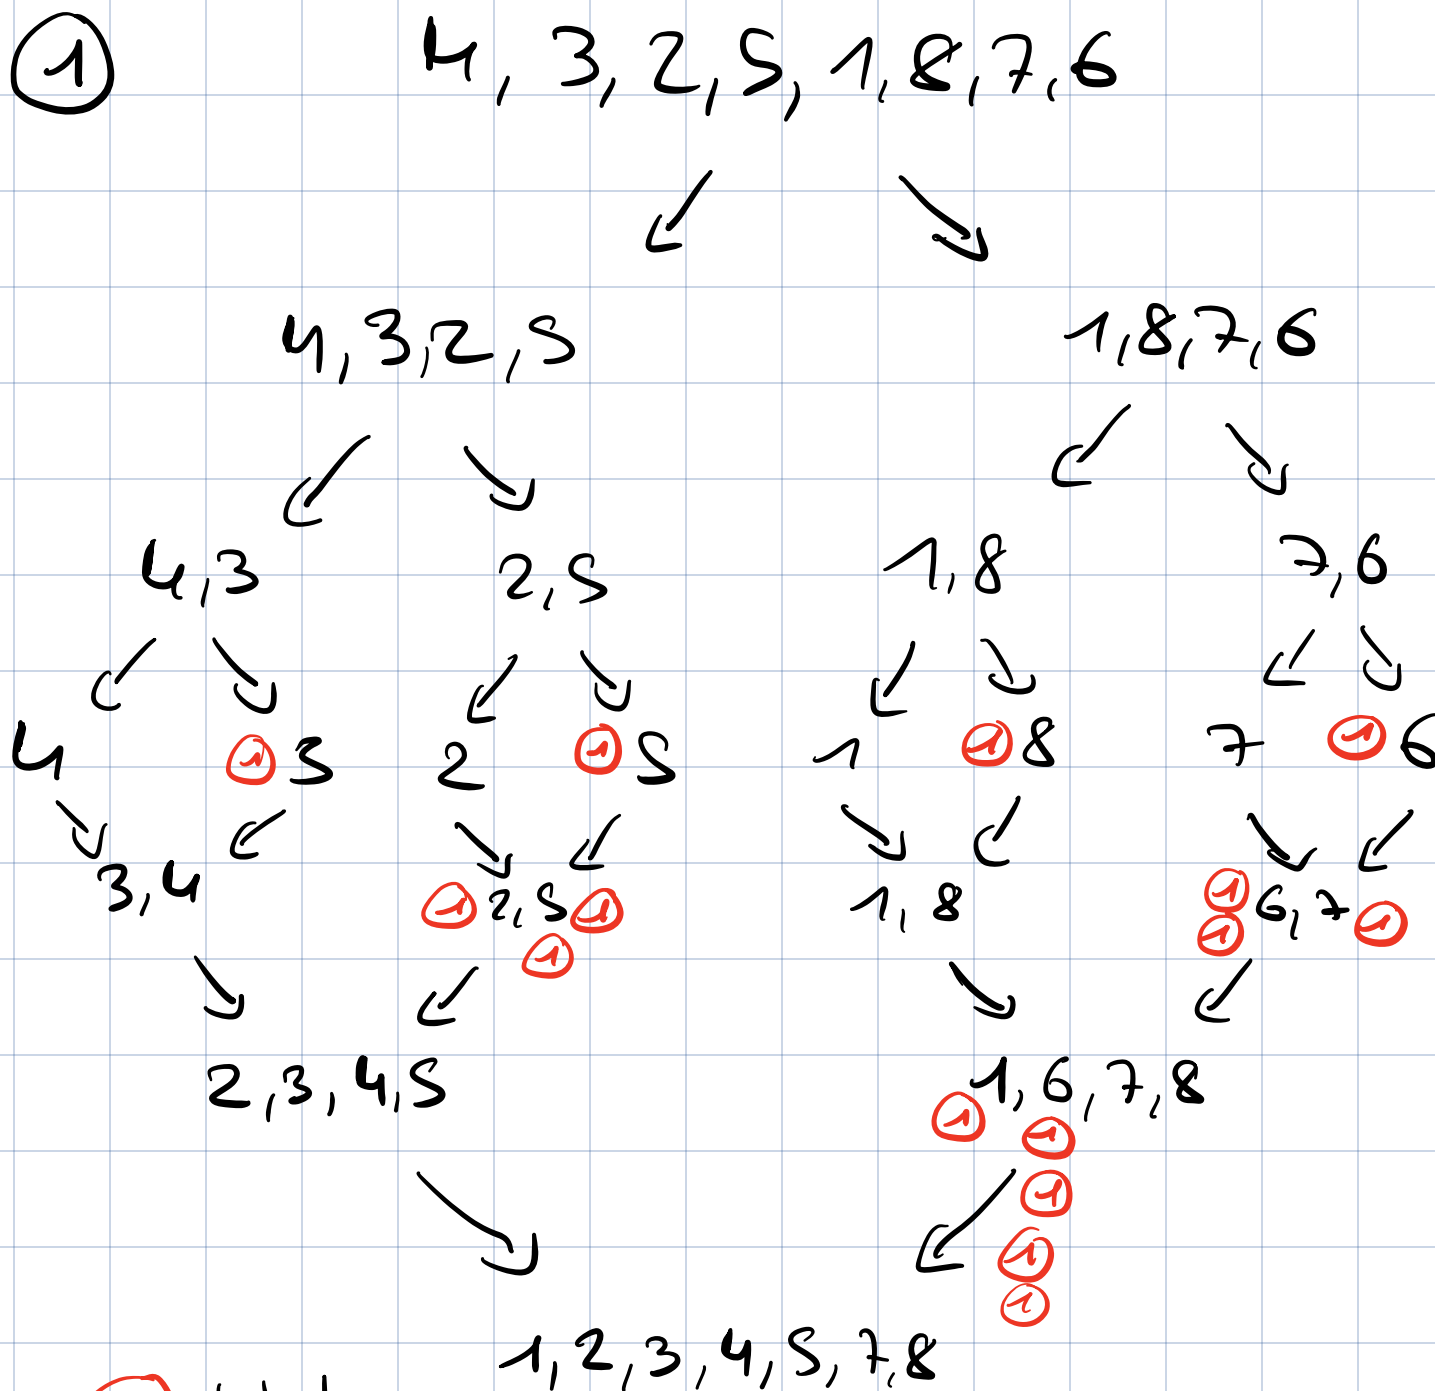 ① 4, 3, 2, 5, 1, 8, 7, 6
4, 3, 2, 5 1, 8, 7, 6
4, 3 2, 5 1, 8 7, 6
4 ① 3 2 ① 5 1 ① 8 7 ① 6
3, 4 ① 2, 5 ① 1, 8 ① 6, 7 ①
① ①
2, 3, 4, 5 1, 6, 7, 8
① ①
①
①
①
1, 2, 3, 4, 5, 7, 8